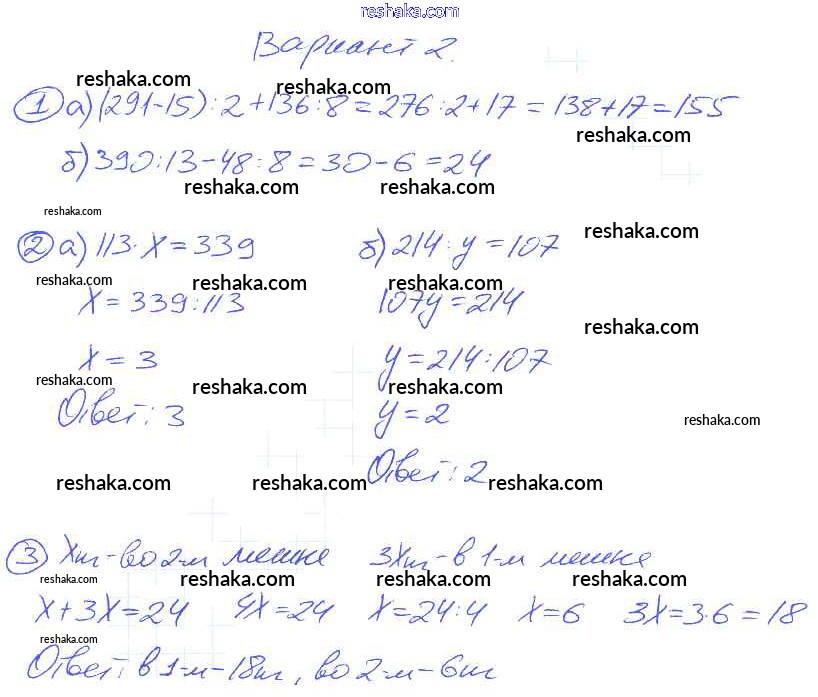 reshaka.com
Вариант 2.
reshaka.com reshaka.com
① а) (291-15):2+136:8=276:2+17=138+17=155
reshaka.com
б) 390:13-48:8=30-6=24
reshaka.com reshaka.com
reshaka.com
② а) 113·x=339 б) 214:y=107
reshaka.com
reshaka.com reshaka.com reshaka.com
x=339:113 107y=214
reshaka.com
x=3 y=214:107
reshaka.com reshaka.com reshaka.com
Ответ: 3 y=2
reshaka.com
Ответ: 2
reshaka.com reshaka.com reshaka.com
③ xкг-во 2-м мешке 3xкг-в 1-м мешке
reshaka.com reshaka.com reshaka.com reshaka.com
x+3x=24 4x=24 x=24:4 x=6 3x=3·6=18
reshaka.com
Ответ: в 1-м-18кг, во 2-м-6кг